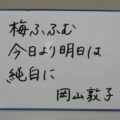 梅ふふむ
今日より明日は
純白に
岡山敦子